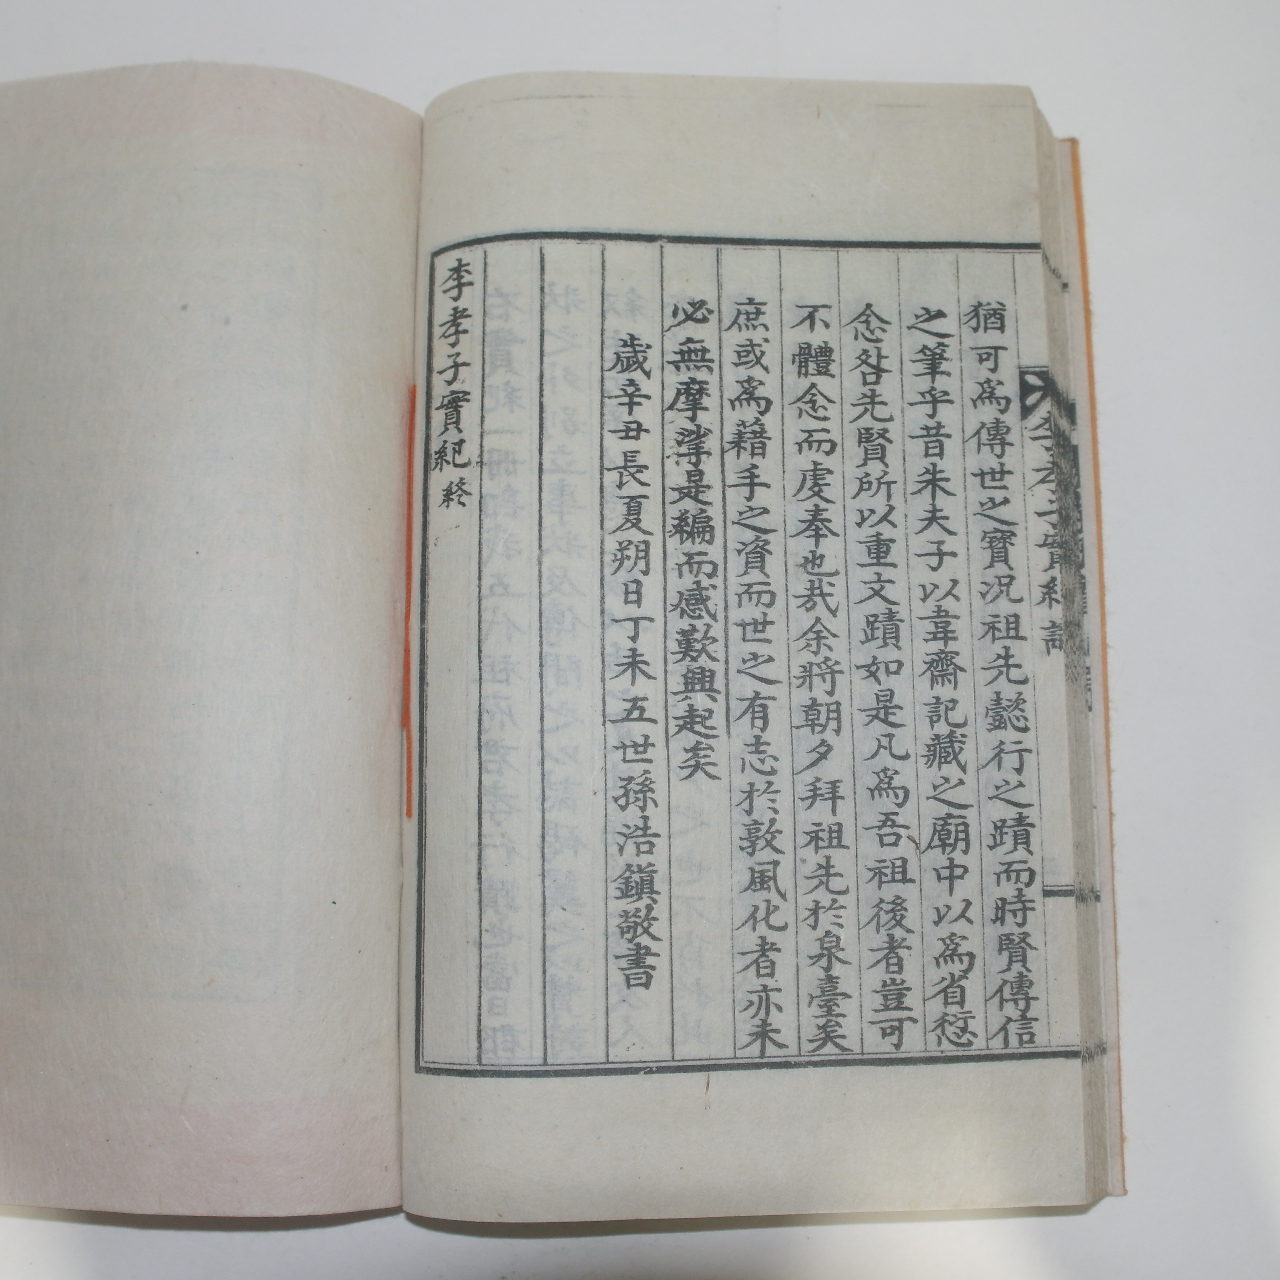 猶可爲傳世之寶况祖先懿行之蹟而時賢傳信
之筆乎昔朱夫子以韋齋記藏之廟中以爲省愆
念咎先賢所以重文蹟如是凡爲吾祖後者豈可
不體念而虔奉也哉余將朝夕拜祖先於泉臺矣
庶或爲藉手之資而世之有志於敦風化者亦未
必無摩挲是編而感歎興起矣
歲辛丑長夏朔日丁未五世孫浩鎭敬書
李孝子實紀終